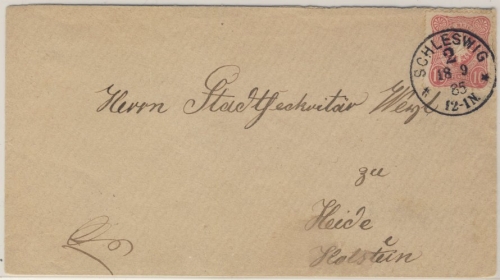 SCHLESWIG
2
18 9
85
12-1N.
Herrn Stadtsekretär
zu
Heide
Holstein